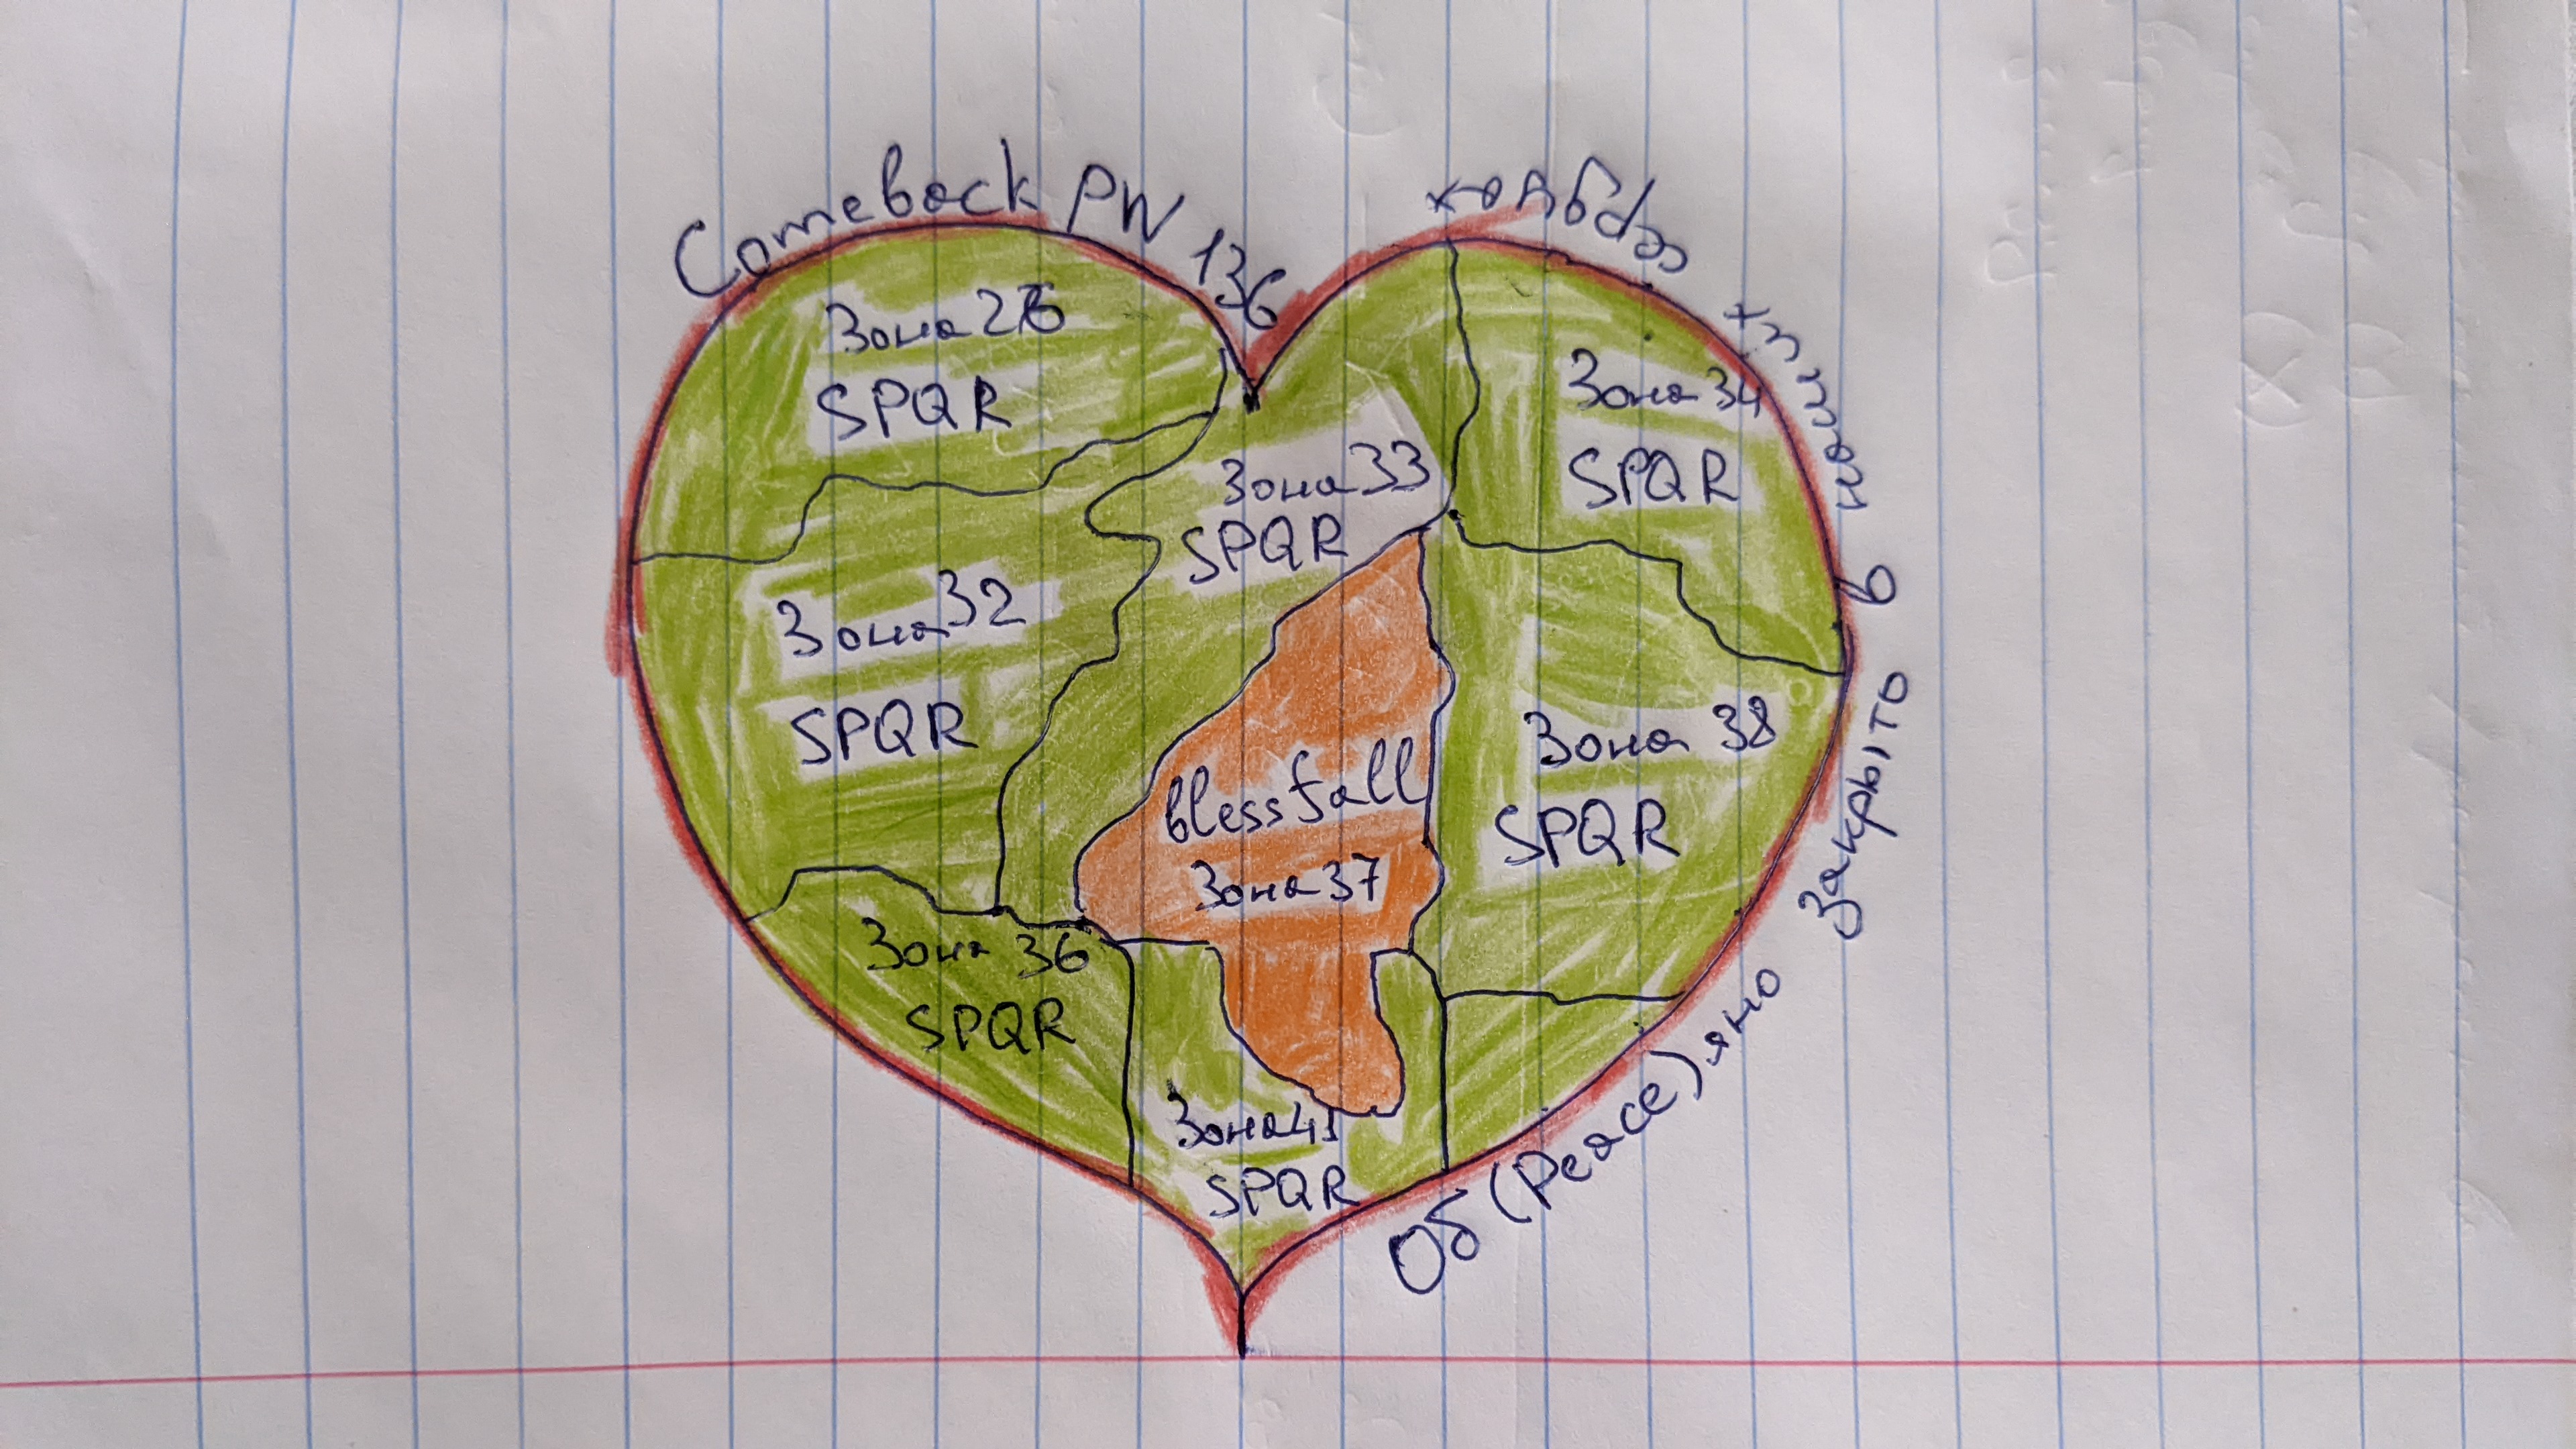 Comeback PW 136
Зона 26
SPQR
Зона 33
SPQR
Зона 34
SPQR
Зона 32
SPQR
Зона 38
SPQR
blessfall
Зона 37
Зона 36
SPQR
Зона 41
SPQR
Об(Peace)яно закрыто в наших сердцах